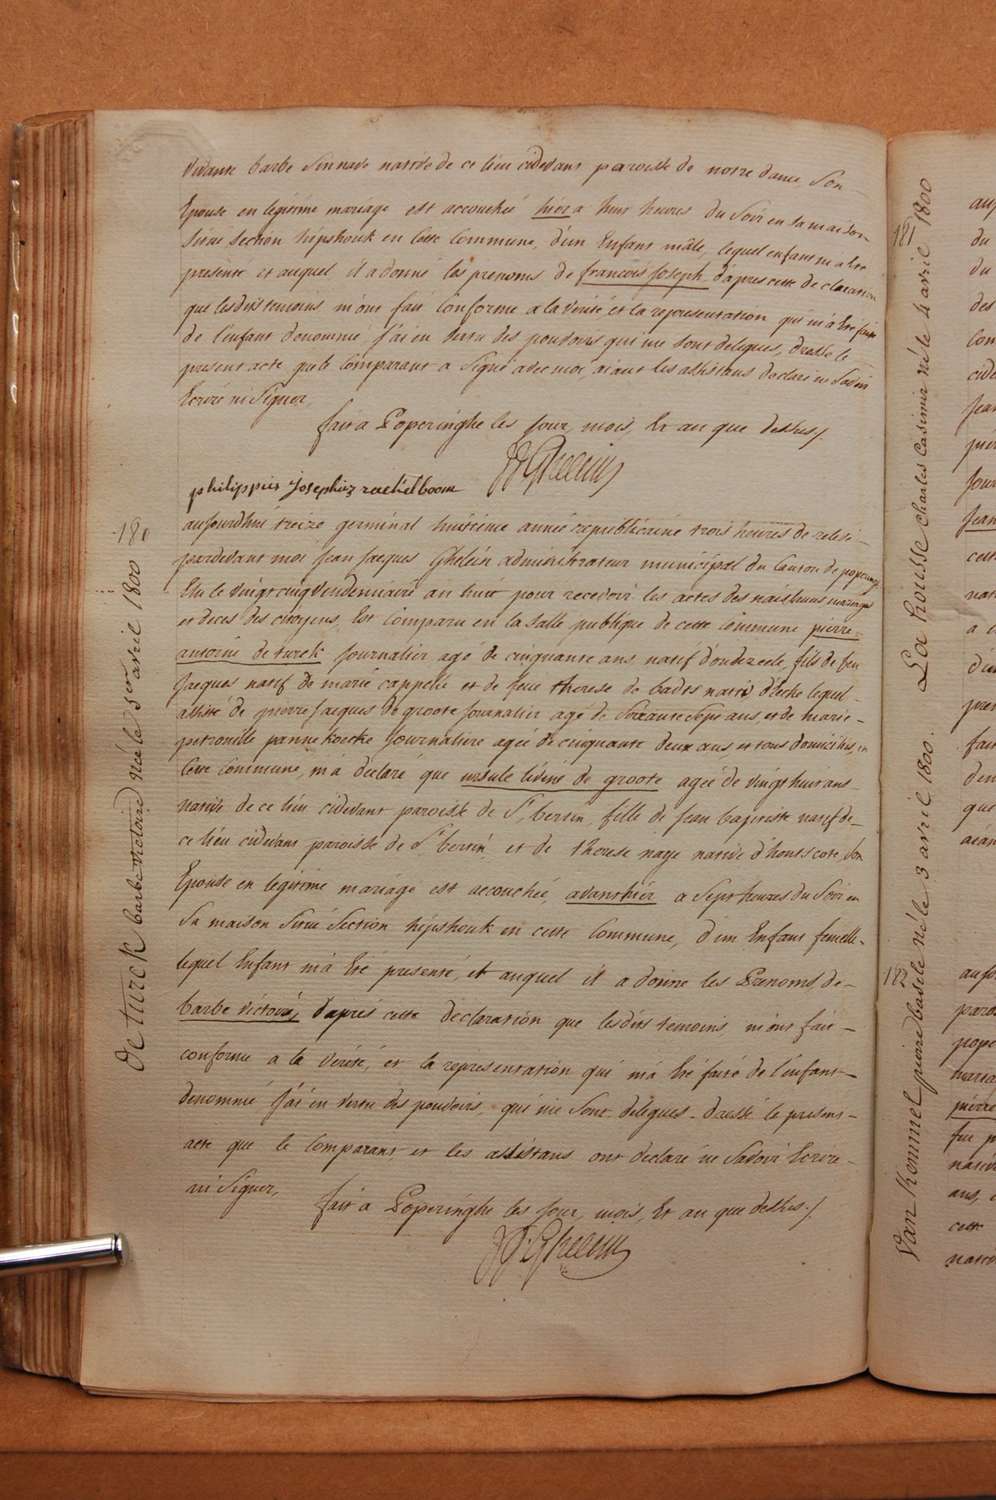 vivante barbe Sinnave native de ce lieu cidevant paroisse de notre dame son
Epouse en legitime mariage est accouchée hier a huit heures du Soir en sa maison
Situé Section hipshouk en Cette Commune, d'un Enfant mâle, lequel enfant m'a été
presenté et auquel il a donné les prenoms de francois Joseph, d'apres cette declaration
que lesdits temoins m'ont fait Conforme a la verité et la representation qui m'a été faite
de l'enfant denommé J'ai en vertu des pouvoirs qui me sont delegués, dressé le
present acte que le Comparant a Signé avec moi, aiant les assistans declaré ne Savoir
Ecrire ni Signer,
fait a Poperinghe les Jour, mois, Et an que dessus /
philippus Josephus rachelboom
180
aujourdhui treize germinal huitieme année republicaine trois heures de relevé
pardevant moi Jean Jacques Ghelein administrateur municipal du Canton de poperinge
Elu le vingt cinq Vendemiaire an huit pour recevoir les actes des naissances mariages
et deces des citoyens, Est comparu en la Salle publique de cette commune pierre
antoine de turck Journalier agé de cinquante ans natif d'oudezeele, fils de feu
Jacques natif de marie cappelle et de feue therese de bades native d'Eecke lequel
assisté de pierre Jacques de groote Journalier agé de Soixante Sept ans, et de marie
petronille pannekoecke Journaliere agée de cinquante deux ans, et tous domiciliés en
Cette Commune, m'a declaré que ursule livine de groote agée de vingt huit ans
native de ce lieu cidevant paroisse de St bertin, fille de Jean baptiste natif de
ce lieu cidevant paroisse de St bertin, et de therese naye native d'hontscote, Son
Epouse en legitime mariage est accouchée, avanthier a Sept heures du Soir en
Sa maison Situé Section hipshouk en cette Commune, d'un Enfant femelle
lequel Enfant m'a Eté presenté, et auquel il a donné les Prenoms de
barbe victoire, d'apres cette declaration que lesdits temoins m'ont fait
conforme a la verité, et la representation qui m'a Eté faite de l'enfant
denommé J'ai en vertu des pouvoirs qui me Sont delegués dressé le present
acte que le Comparant et les assistans ont declaré ne Savoir Ecrire
ni Signer,
fait a Poperinghe les Jour, mois, Et an que dessus /
De turck barbe victoire née le 1er avril 1800
181
La Rousse Charles Casimir né le 4 avril 1800
182
Van Kommel pierre basile né le 3 avril 1800.